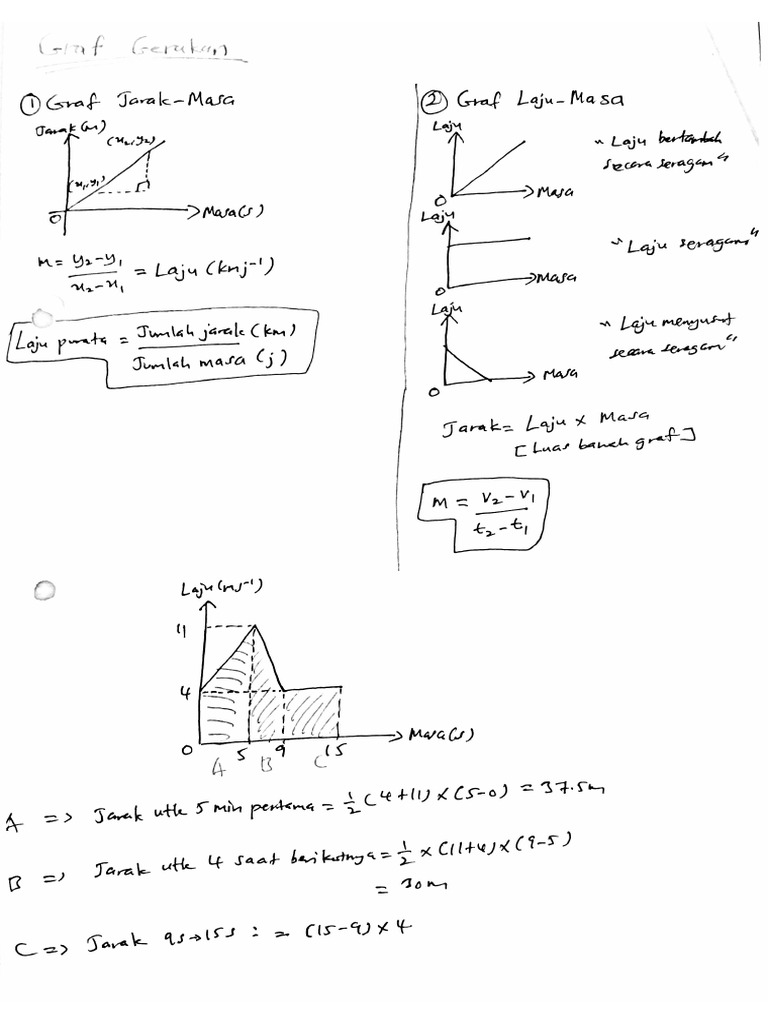 Graf Gerakan
① Graf Jarak-Masa
Jarak(m)
(x₂, y₂)
(x₁, y₁)
0
Masa(s)
m = y₂-y₁ / x₂-x₁ = Laju (kmj⁻¹)
Laju purata = Jumlah jarak (km) / Jumlah masa (j)
② Graf Laju-Masa
Laju
0
Masa
"Laju bertambah
secara seragam"
Laju
0
Masa
"Laju seragam"
Laju
0
Masa
"Laju menyusut
secara seragam"
Jarak = Laju x Masa
[Luas bawah graf]
m = v₂-v₁ / t₂-t₁
Laju (ms⁻¹)
11
4
0
5
9
15
Masa(s)
A
B
C
A => Jarak utk 5 min pertama = ½(4+11)×(5-0) = 37.5m
B => Jarak utk 4 saat berikutnya = ½×(11+4)×(9-5)
= 30m
C => Jarak 9s→15s : = (15-9)×4